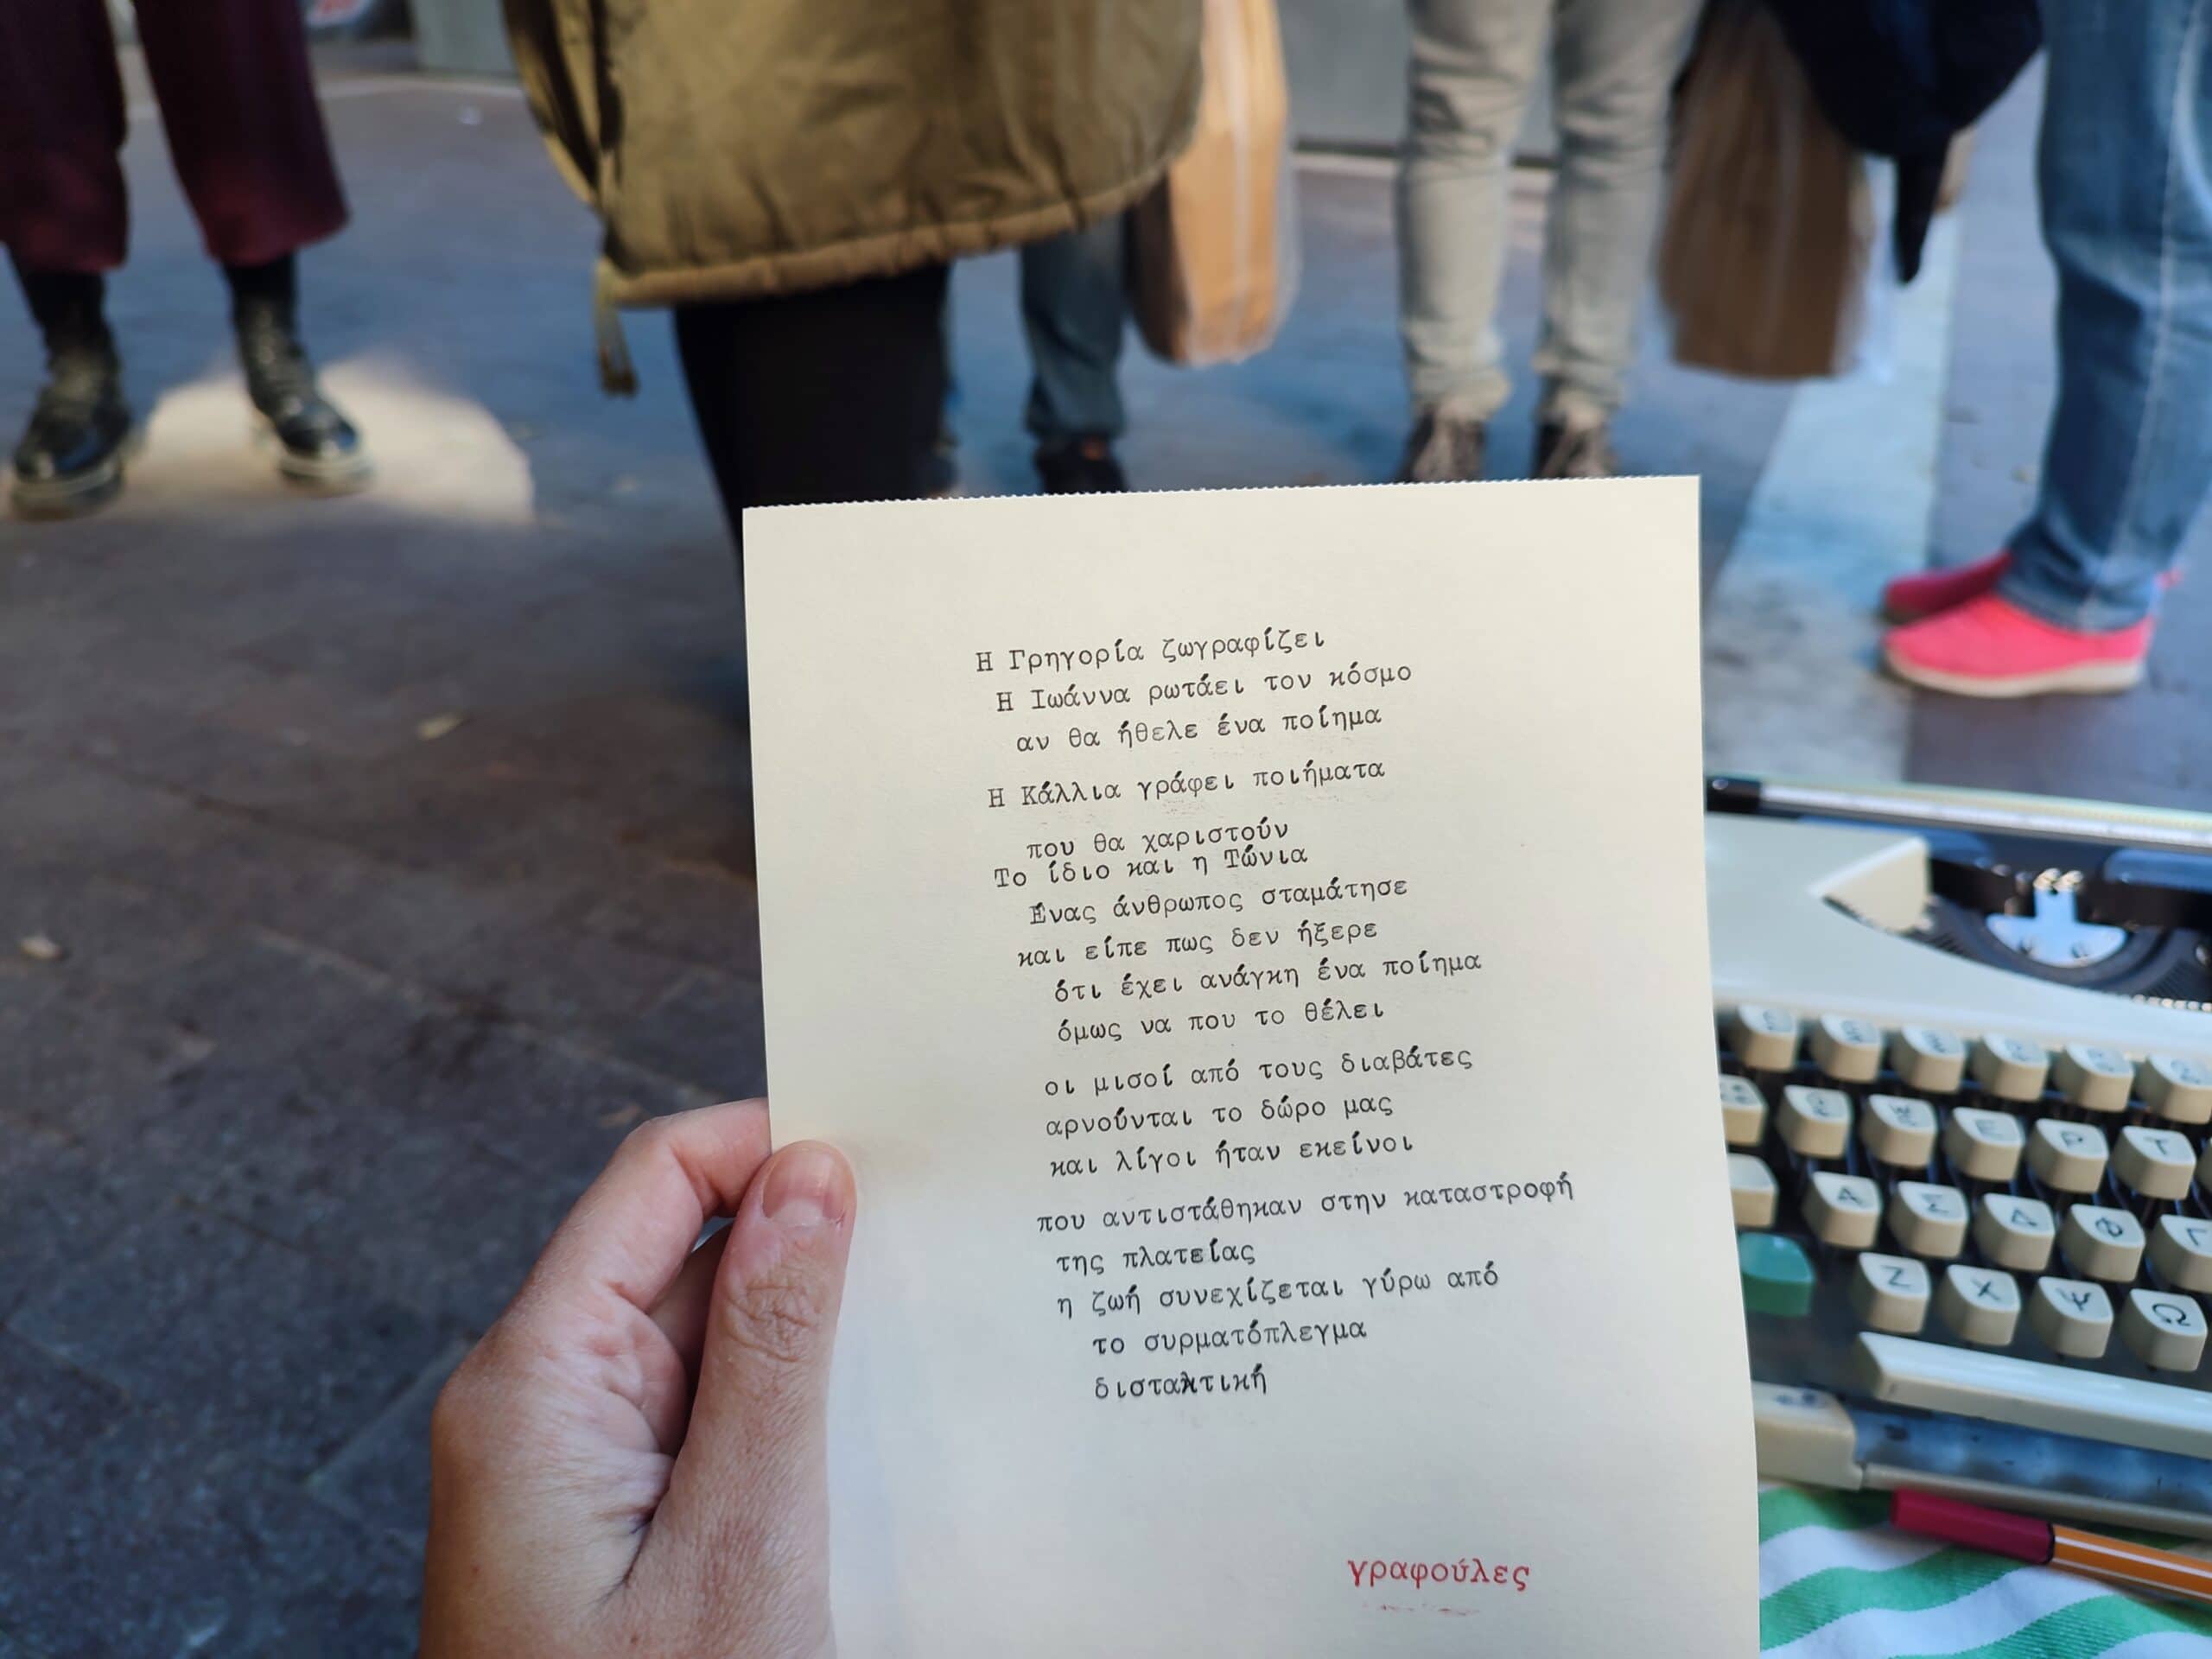 Η Γρηγορία ζωγραφίζει
Η Ιωάννα ρωτάει τον κόσμο
αν θα ήθελε ένα ποίημα
Η Κάλλια γράφει ποιήματα
που θα χαριστούν
Το ίδιο και η Τώνια
Ένας άνθρωπος σταμάτησε
και είπε πως δεν ήξερε
ότι έχει ανάγκη ένα ποίημα
όμως να που το θέλει
οι μισοί από τους διαβάτες
αρνούνται το δώρο μας
και λίγοι ήταν εκείνοι
που αντιστάθηκαν στην καταστροφή
της πλατείας
η ζωή συνεχίζεται γύρω από
το συρματόπλεγμα
διστακτική
γραφούλες
Ε Ρ Τ
Α Σ Δ Φ Γ
Ζ Χ Ψ Ω